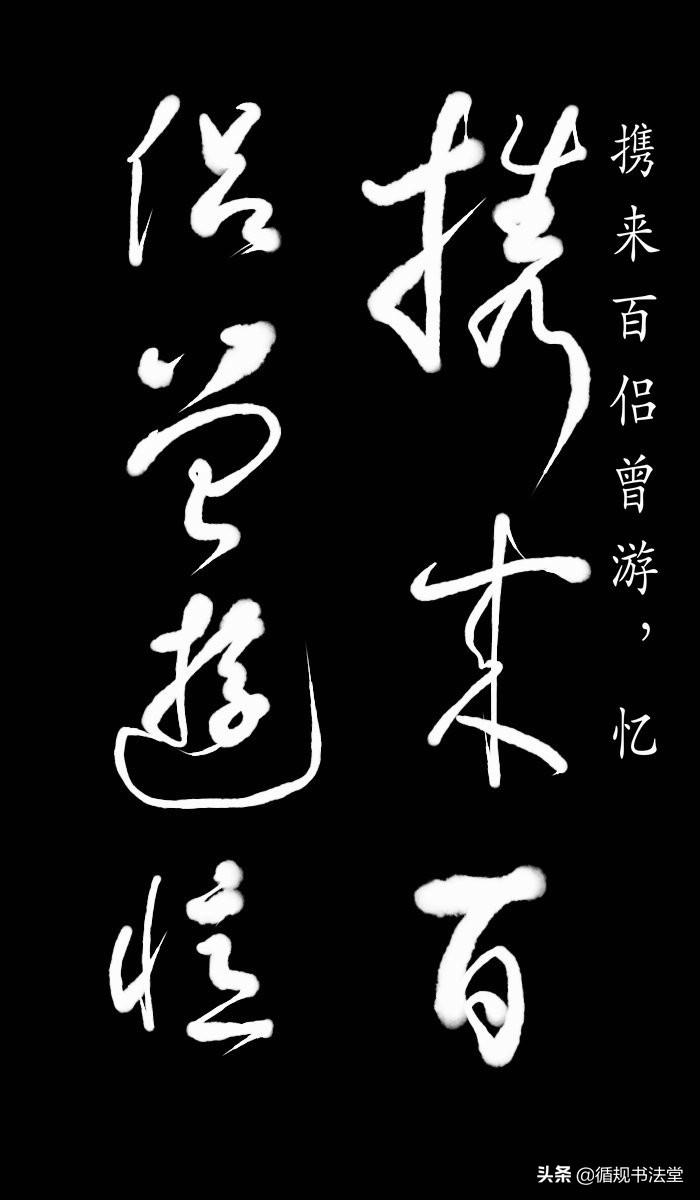 携来百侣曾游，忆
携来百
侣曾遊憶
头条 @循规书法堂